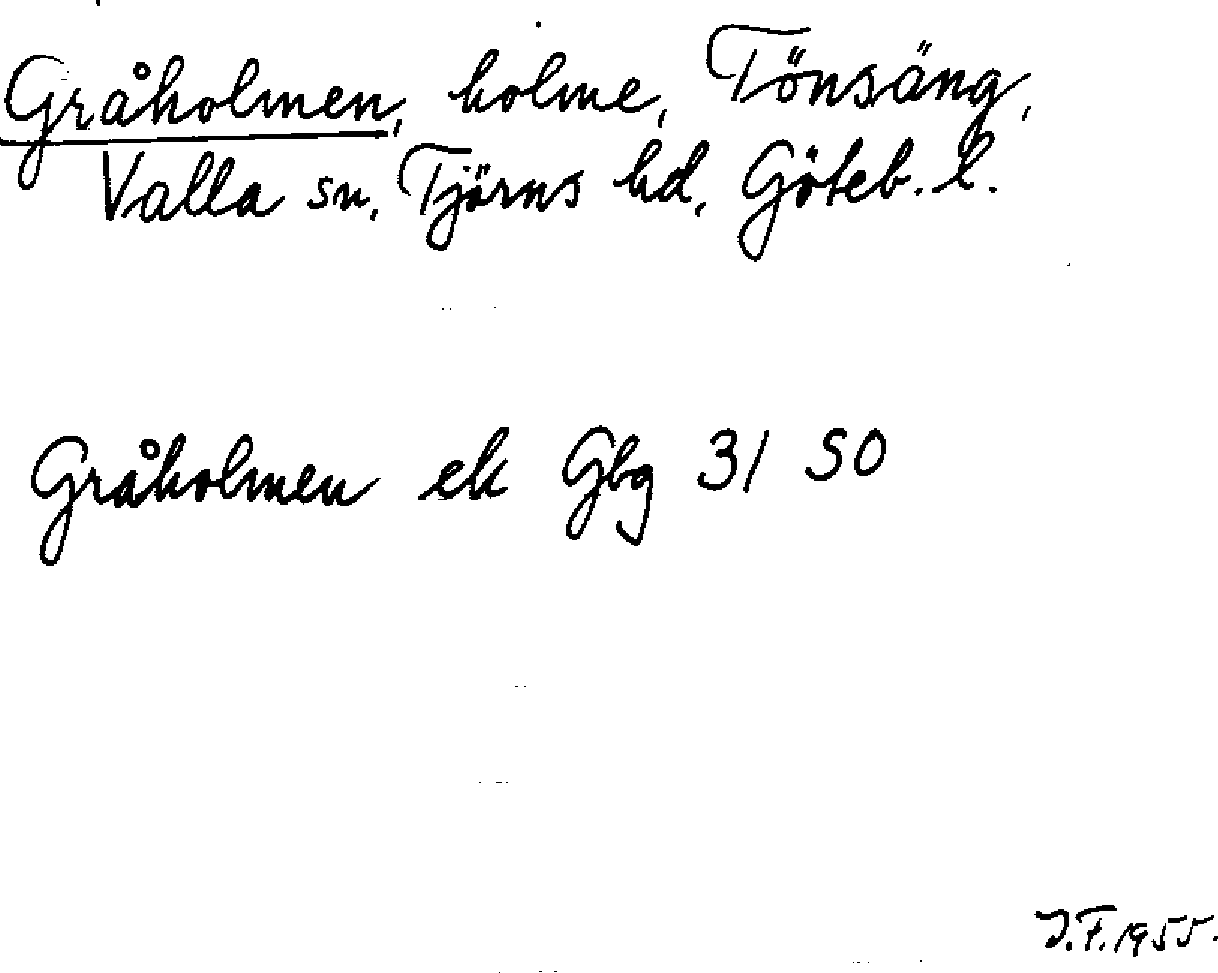 Gråholmen, holme, Tönsäng,
Valla sn, Tjörns hd, Göteb. l.
Gråholmen ek Gbg 31 SO
J.F. 1955.